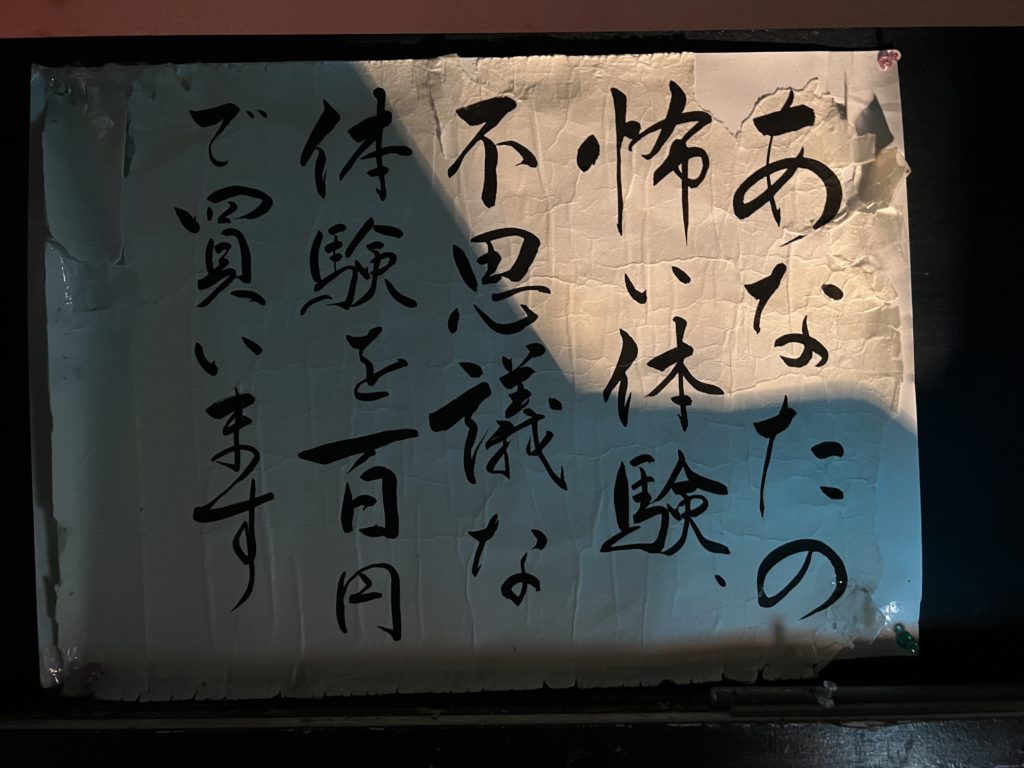 あなたの
怖い体験、
不思議な
体験を百円
で買います